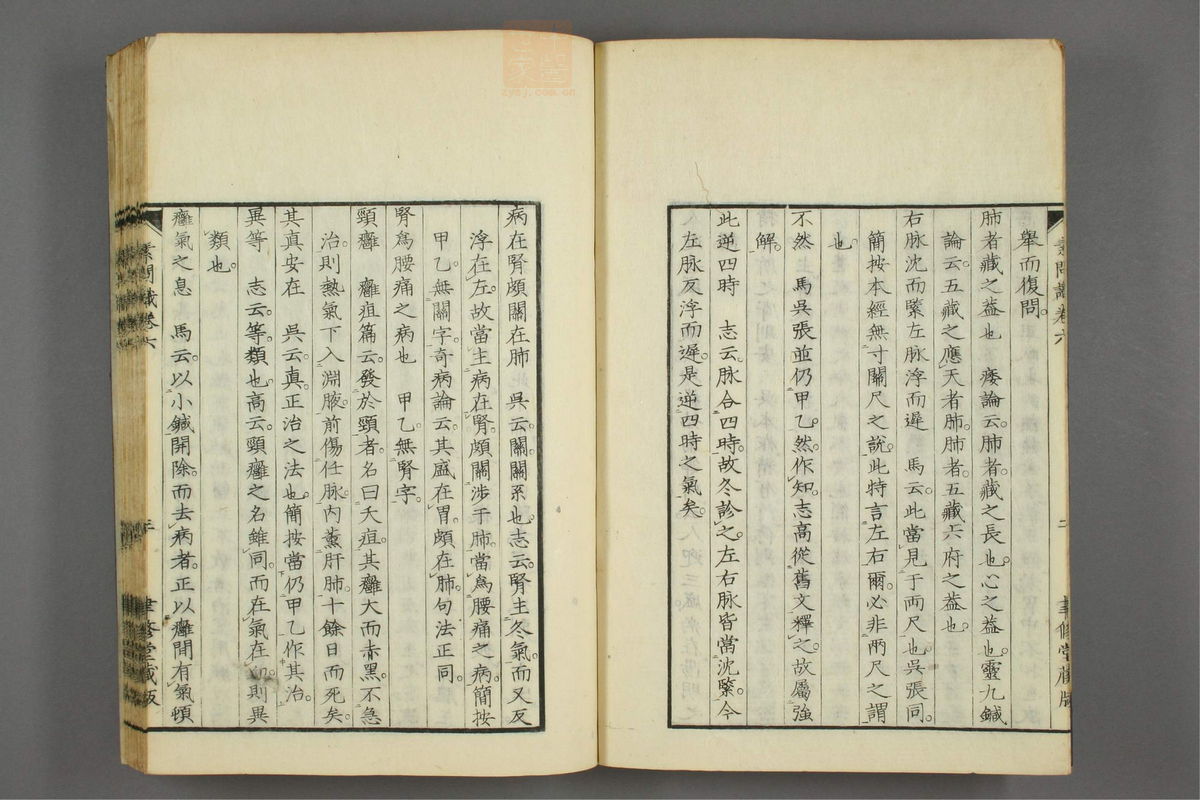 素問識卷六
二
聿修堂藏版
舉而復問。
肺者藏之葢也　痿論云。肺者。藏之長也。心之葢也。靈九鍼
論云。五藏之應天者肺。肺者。五藏六府之葢也。
右脉沈而緊左脉浮而遲　馬云。此當見于兩尺也。吳張同。
簡按本經無寸關尺之說。此特言左右爾。必非兩尺之謂
也。
不然　馬吳張並仍甲乙。然作知。志高從舊文釋之。故屬強
解。
此逆四時　志云。脉合四時。故冬診之。左右脉皆當沈緊。今
左脉反浮而遲。是逆四時之氣矣。
病在腎頗關在肺　吳云。關關系也。志云。腎主冬氣。而又反
浮在左。故當主病在腎。頗關涉于肺。當爲腰痛之病。簡按
甲乙。無關字。奇病論云。其盛在胃。頗在肺。句法正同。
腎爲腰痛之病也　甲乙。無腎字。
頸癰　癰疽篇云。發於頸者。名曰夭疽。其癰大而赤黑。不急
治。則熱氣下入淵腋。前傷任脉。內薰肝肺。十餘日而死矣。
其真安在　吳云。真。正治之法也。簡按當仍甲乙作其治。
異等　志云。等。類也。高云。頸癰之名雖同。而在氣在血則異
類也。
癰氣之息　馬云。以小鍼開除而去病者。正以癰間有氣頓
素問識卷六
三
聿修堂藏版